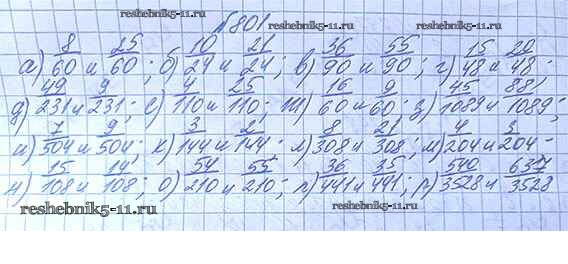 №801 reshebnik5-11.ru
reshebnik5-11.ru
а) 8/60 и 25/60; б) 10/24 и 21/24; в) 36/90 и 55/90; г) 15/48 и 20/48.
д) 49/231 и 9/231; е) 4/110 и 25/110; ж) 16/60 и 9/60; з) 45/1089 и 88/1089;
и) 7/504 и 9/504; к) 3/144 и 2/144; л) 8/308 и 21/308; м) 4/204 и 3/204.
н) 15/108 и 14/108; о) 54/210 и 55/210; п) 36/441 и 35/441; р) 540/3528 и 637/3528
reshebnik5-11.ru reshebnik5-11.ru